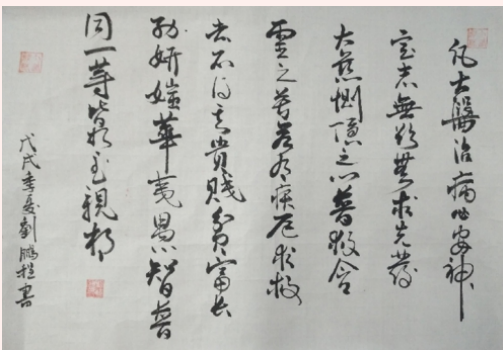 凡大醫治病必安神
定志無欲無求先發
大慈惻隱之心普救含
靈之苦若有疾厄求救
者不得問其貴賤貧富長
幼妍媸華夷愚智普
同一等皆如至親想
戊戌季夏劉鵬程書